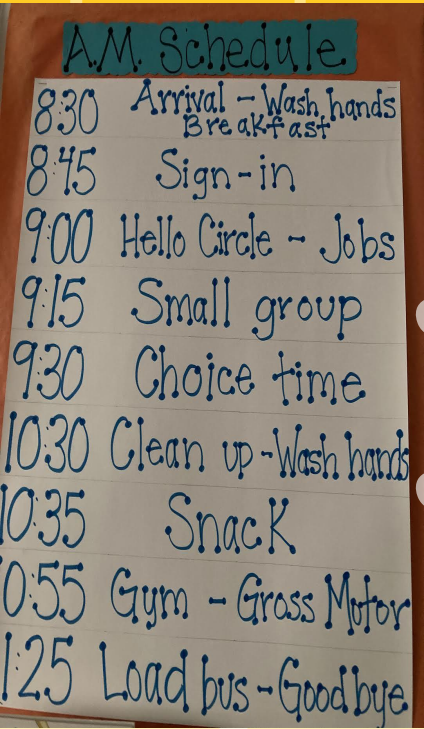 A.M. Schedule
8:30 Arrival - Wash hands
Breakfast
8:45 Sign-in
9:00 Hello Circle - Jobs
9:15 Small group
9:30 Choice time
10:30 Clean up - Wash hands
10:35 Snack
0:55 Gym - Gross Motor
1:25 Load bus - Goodbye